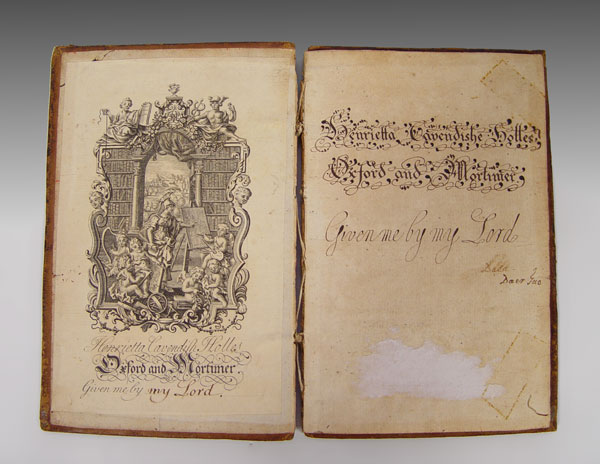 Henrietta Cavendish Holles
Oxford and Mortimer.
Given me by my Lord.
Henrietta Cavendishe Holles
Oxford and Mortimer
Given me by my Lord